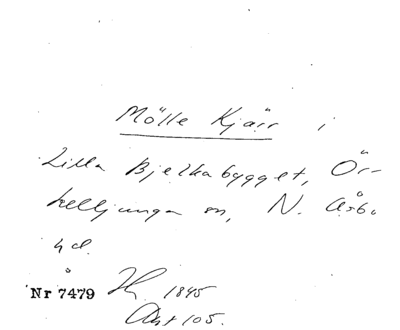 Mölle Kjärr i
Lilla Bjelkabygget, Ör-
kelljunga sn, N. Åsbo
hd.
Nr 7479 1845
Akt 105.